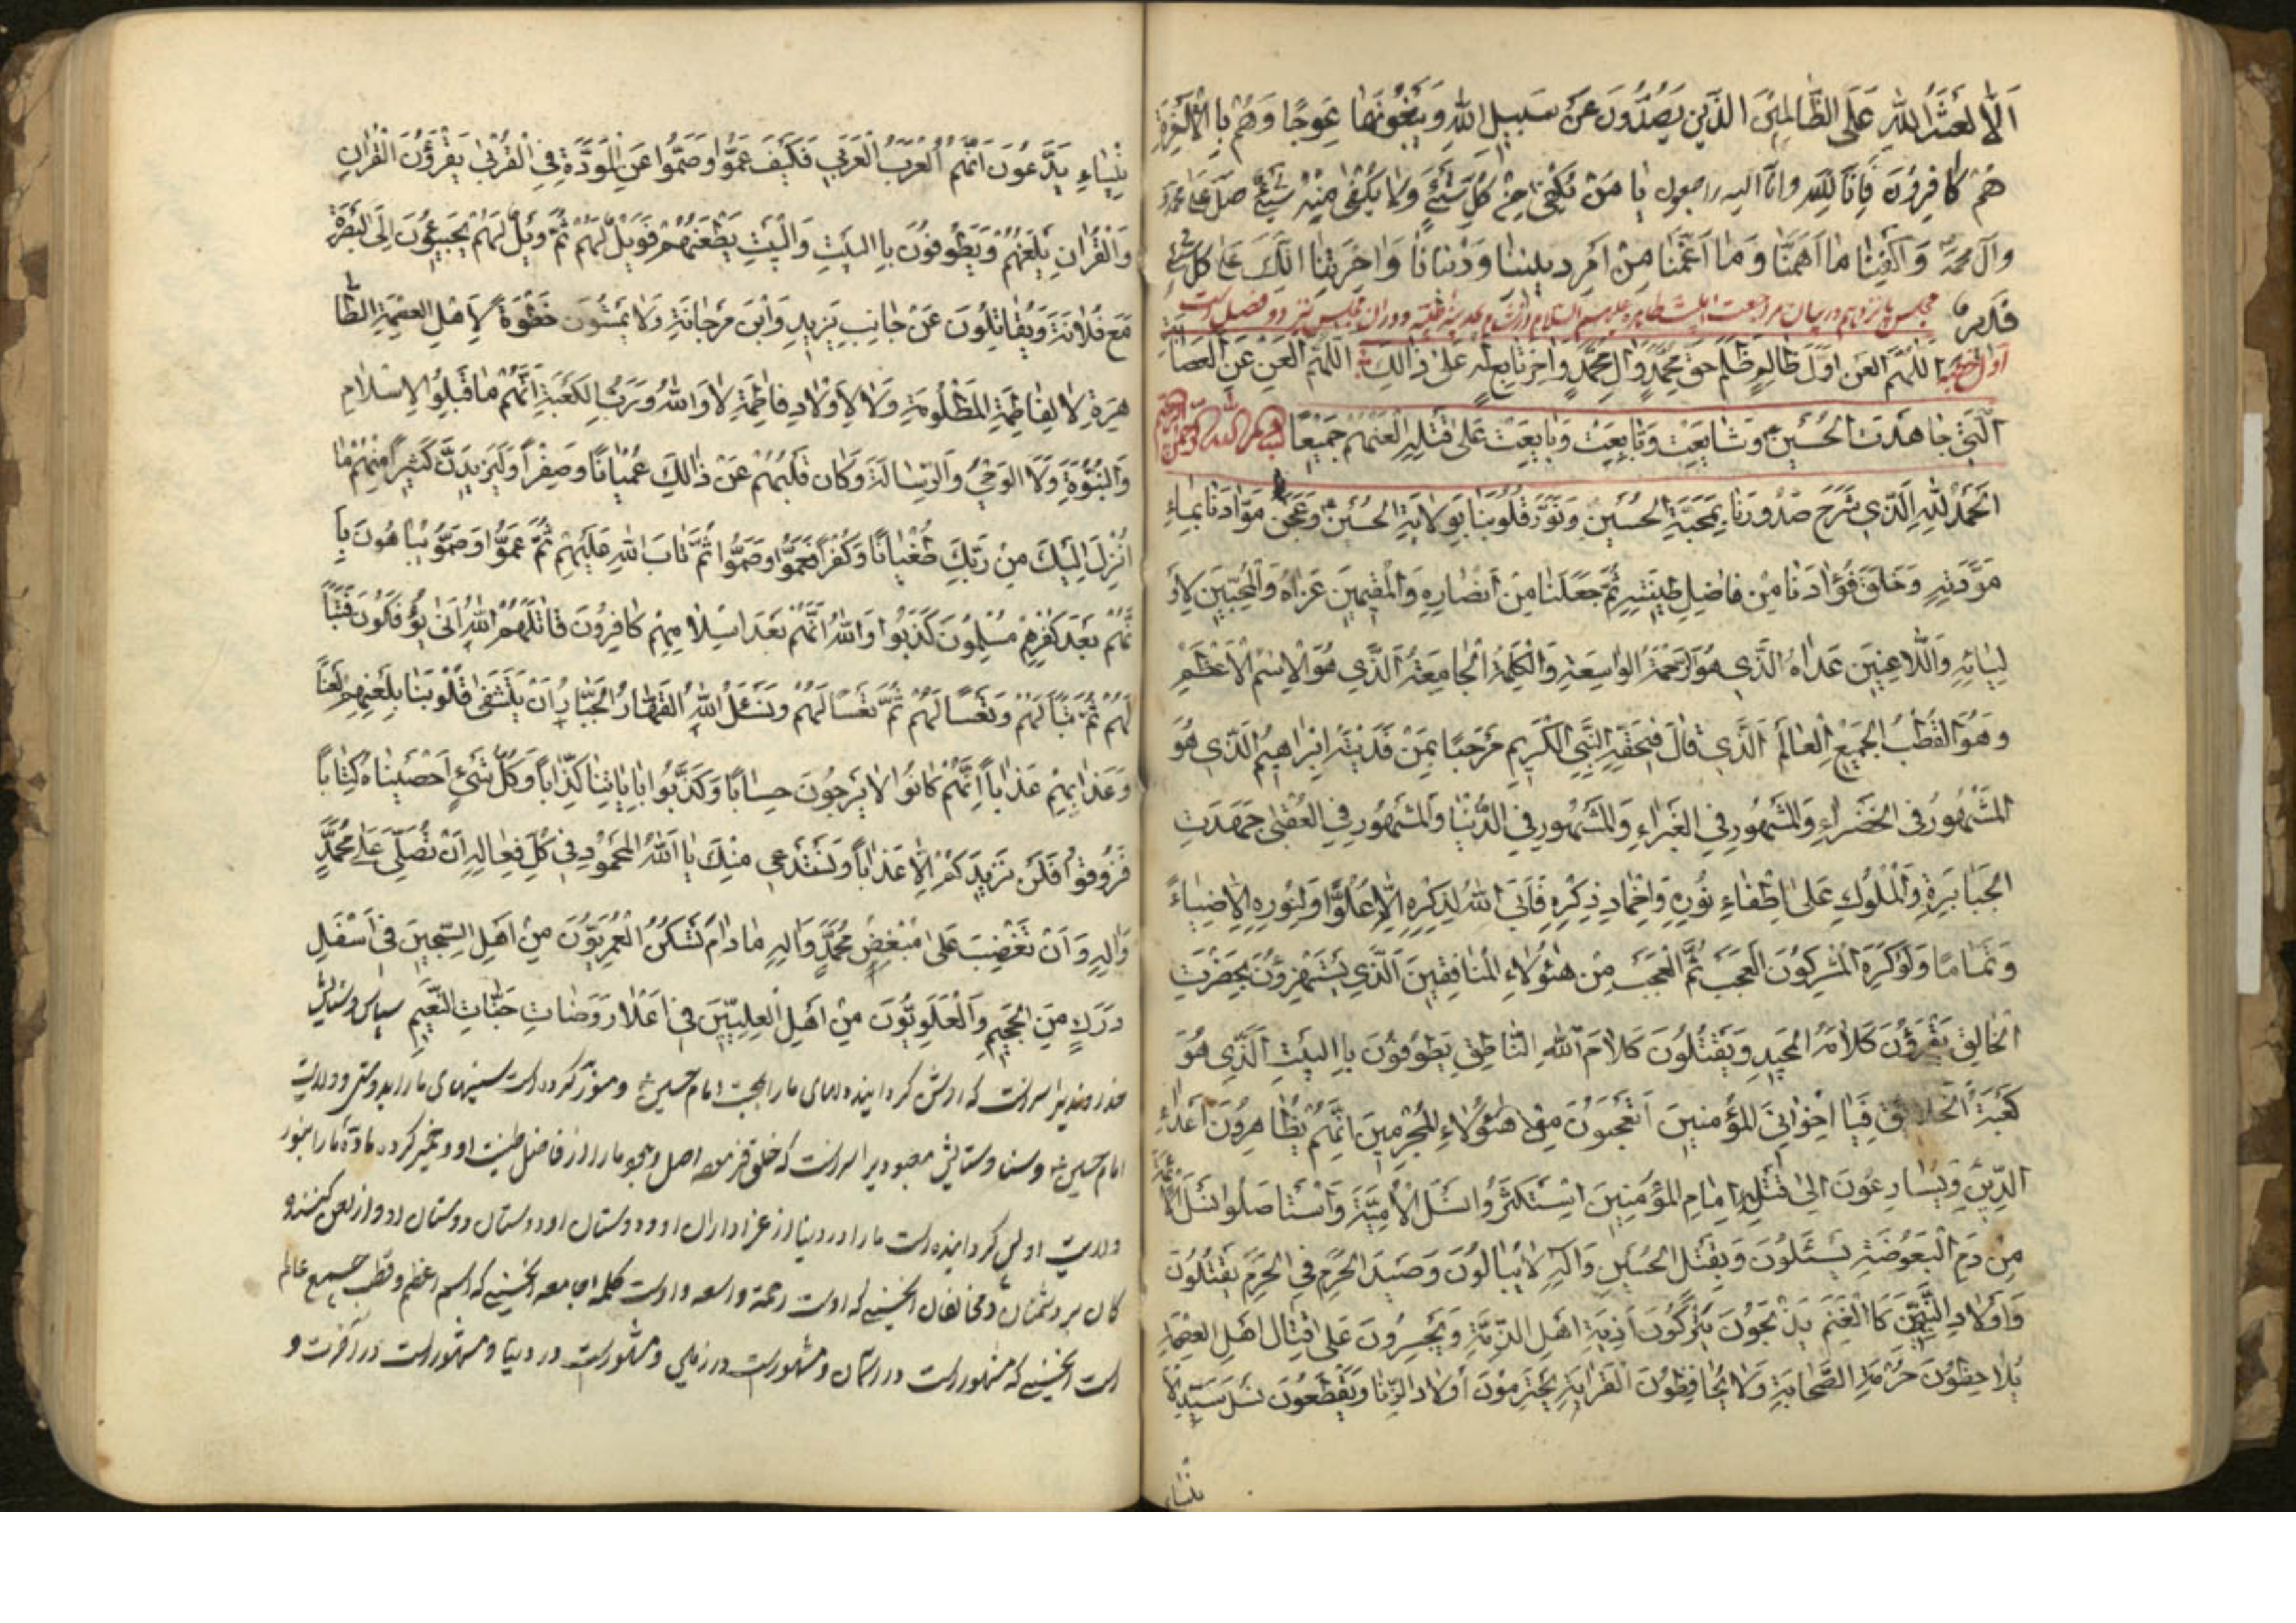 اَلَا لَعْنَةُ اللهِ عَلَى الظَّالِمِيْنَ الَّذِيْنَ يَصُدُّوْنَ عَنْ سَبِيْلِ اللهِ وَيَبْغُوْنَهَا عِوَجًا وَهُمْ بِاالْاٰخِرَةِ
هُمْ كَافِرُوْنَ فَاِنَّا لِلّٰهِ وانّا اليه راجعون يَا مَنْ يَكْفِىْ مِنْ كُلِّ شَيْءٍ وَلَا يَكْفِىْ مِنْهُ شَيْءٌ صَلِّ عَلىٰ مُحَمَّدٍ
وَآلِ مُحَمَّدٍ وَاكْفِنَا مَا اَهَمَّنَا وَمَا اَغَمَّنَا مِنْ اَمْرِ دِيْنِنَا وَدُنْيَانَا وَاٰخِرَتِنَا اِنَّكَ عَلىٰ كُلِّ شَيْءٍ
قَدِيْر مجلس پانزدهم در بيان مراجعت اهلبيت طاهره عليهم السلام از شام بمدينه طيبه و در ان مجلس نيز دو فصل است
اول خطبه اَللّٰهُمَّ الْعَنْ اَوَّلَ ظَالِمٍ ظَلَمَ حَقَّ مُحَمَّدٍ وَّاٰلِ مُحَمَّدٍ وَّاٰخِرَ تَابِعٍ لَهُ عَلىٰ ذَالِكَ اَللّٰهُمَّ الْعَنْ عَنِ الْعِصَابَةِ
الَّتِىْ جَاهَدَتِ الْحُسَيْنَ وَشَايَعَتْ وَتَابَعَتْ وَبَايَعَتْ عَلىٰ قَتْلِهِ الْعَنْهُمْ جَمِيْعًا بسم الله الرحمن الرحيم
اَلْحَمْدُ لِلّٰهِ الَّذِىْ شَرَحَ صُدُوْرَنَا بِمَحَبَّةِ الْحُسَيْنِ وَنَوَّرَ قُلُوْبَنَا بِوِلَايَةِ الْحُسَيْنِ وَعَجَنَ مَوَادَّنَا بِمَاءِ
مَوَدَّتِهِ وَخَلَقَ فُؤَادَنَا مِنْ فَاضِلِ طِيْنَتِهِ ثُمَّ جَعَلَنَا مِنْ اَنْصَارِهِ وَالْمُقِيْمِيْنَ عَزَاهُ وَالْمُحِبِّيْنَ لِاَوْ
لِيَائِهِ وَاللَّاعِنِيْنَ عَدَاهُ الَّذِىْ هُوَ الرَّحْمَةُ الْوَاسِعَةُ وَالْكَلِمَةُ الْجَامِعَةُ الَّذِىْ هُوَ الْاِسْمُ الْاَعْظَمُ
وَهُوَ الْقُطْبُ الْجَمِيْعِ الْعَالَمِ الَّذِىْ قَالَ فِىْ حَقِّهِ النَّبِىُّ الْكَرِيْمِ مَرْحَبًا بِمَنْ فَدَيْتُهُ اِبْرَاهِيْمُ الَّذِىْ هُوَ
الْمَشْهُوْرُ فِى الْخَضْرَاءِ وَالْمَشْهُوْرِ فِى الْغَبْرَاءِ وَالْمَشْهُوْرِ فِى الدُّنْيَا وَالْمَشْهُوْرِ فِى الْعُقْبىٰ جَهَدَتِ
الْجَبَابِرَةِ وَالْمُلُوْكِ عَلىٰ اِطْفَاءِ نُوْرِهِ وَاِخْمَادِ ذِكْرِهِ فَاَبَى اللهُ لِذِكْرِهِ اِلَّا عُلُوًّا وَلِنُوْرِهِ اِلَّا ضِيَاءً
وَتَمَامًا وَلَوْ كَرِهَ الْمُشْرِكُوْنَ الْعَجَبُ ثُمَّ الْعَجَبُ مِنْ هٰؤُلَاءِ الْمُنَافِقِيْنَ الَّذِىْ يَسْتَهْزِؤُنَ بِحَضْرَتِ
الْخَالِقِ يَقْرَؤُنَ كَلَامَهُ الْمَجِيْدِ وَيَقْتُلُوْنَ كَلَامَ اللهِ النَّاطِقِ يَطُوْفُوْنَ بِاالْبَيْتِ الَّذِىْ هُوَ
كَعْبَةُ الْخَلَايِقِ فَيَا اِخْوَانِىَ الْمُؤْمِنِيْنَ اَتَعْجَبُوْنَ مِنْ هٰؤُلَاءِ الْمُجْرِمِيْنَ اِنَّهُمْ يُظَاهِرُوْنَ اَعْدَاءِ
الدِّيْنِ وَيُسَارِعُوْنَ اِلىٰ قَتْلِ اِمَامِ الْمُؤْمِنِيْنَ اِسْتَكْثَرُوْا نَسْلَ الْاُمَيَّةِ وَاسْتَاصَلُوْا نَسْلَ الْاَئِمَّةِ
مِنْ دَمِ الْبَعُوْضَةِ يَسْئَلُوْنَ وَبِقَتْلِ الْحُسَيْنِ وَآلِهِ لَا يُبَالُوْنَ وَصَيْدَ الْحَرَمِ فِى الْحَرَمِ يَقْتُلُوْنَ
وَاَوْلَادِ النَّبِيِّيْنَ كَاالْغَنَمِ يَذْبَحُوْنَ يَتْرُكُوْنَ اَذِيَةَ اَهْلِ الذِّمَّةِ وَيَجْسِرُوْنَ عَلىٰ قِتَالِ اَهْلِ الْعِصْمَةِ
يُلَاحِظُوْنَ حُرْمَةَ الصَّحَابَةِ وَلَا يُحَافِظُوْنَ الْقَرَابَةِ يَحْتَرِمُوْنَ اَوْلَادَ الزِّنَا وَيَقْطَعُوْنَ نَسْلَ سَيِّدَةِ النِّ
لنساء
لِنِّسَاءِ يَدَّعُوْنَ اَنَّهُمْ الْعَرَبُ الْعَرَبِىِّ فَكَيْفَ عَمُوْا وَصَمُّوْا عَنِ الْمَوَدَّةِ فِى الْقُرْبىٰ يَقْرَؤُنَ الْقُرْاٰنِ
وَالْقُرْاٰنِ يَلْعَنُهُمْ وَيَطُوْفُوْنَ بِاالْبَيْتِ وَالْبَيْتِ يَطْعَنُهُمْ فَوَيْلٌ لَهُمْ ثُمَّ وَيْلٌ لَهُمْ يَجِيْئُوْنَ اِلَى الْبَصْرَةِ
مَعَ فُلَانَةَ وَيُقَاتِلُوْنَ عَنْ جَانِبِ يَزِيْدِ وَابْنِ مَرْجَانَةِ وَلَا يَمْشُوْنَ خَطْوَةً لِاَهْلِ الْعِصْمَةِ الطَّا
هِرَةِ لَا لِفَاطِمَةِ الْمَظْلُوْمَةِ وَلَا لِاَوْلَادِ فَاطِمَةِ لَا وَاللهُ وَرَبِّ الْكَعْبَةِ اَنَّهُمْ مَا قَبِلُوْا الْاِسْلَامِ
وَالنُّبُوَّةِ وَلَا الْوَحْىِ وَالرِّسَالَةَ وَكَانَ قَلْبُهُمْ عَنْ ذَالِكَ عُمْيَانًا وَصِفْرًا وَلَيَزِيْدَنَّ كَثِيْرًا مِنْهُمْ مَا
اُنْزِلَ اِلَيْكَ مِنْ رَبِّكَ طُغْيَانًا وَكُفْرًا فَعَمُوْا وَصَمُّوْا ثُمَّ تَابَ اللهِ عَلَيْهِمْ ثُمَّ عَمُوْا وَصَمُّوْ يُبَاهُوْنَ بِاَ
نَّهُمْ بَعْدَ كُفْرِهِمْ مُسْلِمُوْنَ كَذَبُوْا وَاللهُ اِنَّهُمْ بَعْدَ اِسْلَامِهِمْ كَافِرُوْنَ قَاتَلَهُمُ اللهُ اَنّىٰ يُؤْفَكُوْنَ فَتَبًّا
لَهُمْ ثُمَّ تَبًّا لَهُمْ وَتَعْسًا لَهُمْ ثُمَّ تَعْسًا لَهُمْ وَنَسْئَلُ اللهَ الْقَهَّارُ الْجَبَّارُ اَنْ يَتَشَفّىٰ قُلُوْبَنَا بِلَعْنِهِمْ لَعْنًا
وَعَذَابِهِمْ عَذَابًا اِنَّهُمْ كَانُوْا لَا يَرْجُوْنَ حِسَابًا وَكَذَّبُوْا بِاٰيَاتِنَا كِذَّابًا وَكُلَّ شَيْءٍ اَحْصَيْنَاهُ كِتَابًا
فَذُوْقُوْا فَلَنْ نَزِيْدَكُمْ اِلَّا عَذَابًا وَنَسْتَدْعِى مِنْكَ يَا اللهُ الْمَحْمُوْدِ فِىْ كُلِّ فِعَالِهِ اَنْ تُصَلِّىَ عَلىٰ مُحَمَّدٍ
وَاٰلِهِ وَاَنْ تَغْضِبَ عَلىٰ مُبْغِضِ مُحَمَّدٍ وَاٰلِهِ مَادَامَ تَسَكَّنُ الْعُمَرِيُّوْنَ مِنْ اَهْلِ السِّجِّيْنَ فِىْ اَسْفَلِ
دَرَكٍ مِنَ الْجَحِيْمِ وَالْعَلَوِيُّوْنَ مِنْ اَهْلِ الْعِلِيِّيْنَ فِىْ اَعْلَا رَوَضَاتِ جَنَّاتِ النَّعِيْمِ سپاس وستايش
خداونديرا سزاست كه روشن گردانيده دلهاى ما را بمحبت امام حسين و منور كرده است سينهاى ما را بدوستى و ولايت
امام حسين و ثنا وستايش معبوديرا سزاست كه خلق فرموده اصل وجود ما را از فاضل طينت او و تخمير كرده ماده ما را بنور
ولايت او پس گردانيده است ما را در دنيا از عزاداران او و دوستان او و دوستان دوستان او و از لعن كنندو
گان بر دشمنان و مخالفان الحسينى كه اوست رحمة واسعه و اوست كلمه جامعه الحسينى كه اسم اعظم و قطب جميع عالم
است الحسينى كه مشهور است در اسمان و مشهور است در زمين و مشهور است در دنيا و مشهور است در آخرت و